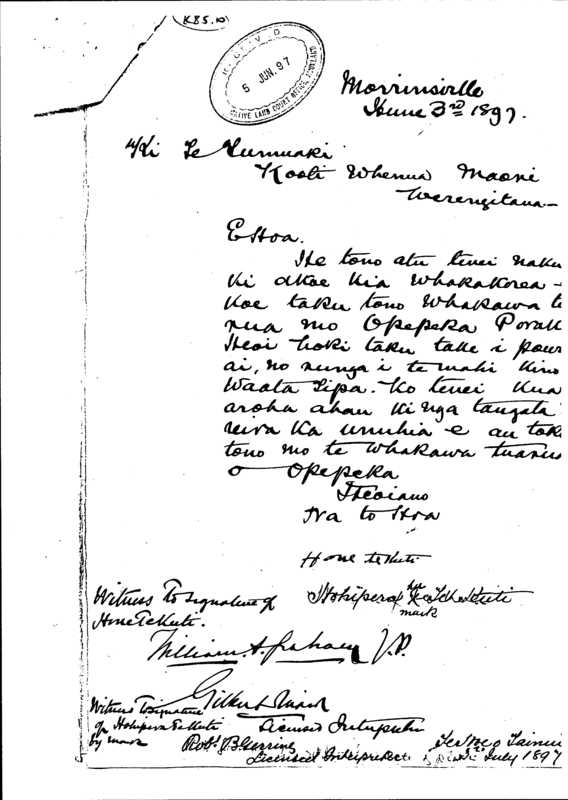 K85.10
RECEIVED
5 JUN. 97
NATIVE LAND COURT OFFICE, AUCKLAND
Morrinsville
June 3rd 1897.
Ki Te Tumuaki
Kooti Whenua Maori
Werengitana—
E Hoa.
He tono atu tenei naku
Ki a Koe Kia Whakakorea—
Koe taku tono Whakawa t
nua mo Opepeka Porak
Heoi hoki taku take i pour
ai, no runga i te mahi Kino
Waata Tipa. Ko tenei Kua
aroha ahau Ki nga tangata
reira Ka unuhia e au tok
tono mo te Whakawa tuarua
o Opepeka
Heoiano
Na to Hoa
Hone te Kuti
Hohipera her x Te Kuti
mark
Witness To Signature of
Hone Te Kuti.
William A. Graham J.P.
Gilbert Mair
Licensed Interpreter
Witness To Signature
of Hohipera Te Kuti
by mark
Licensed Interpreter
July 1897